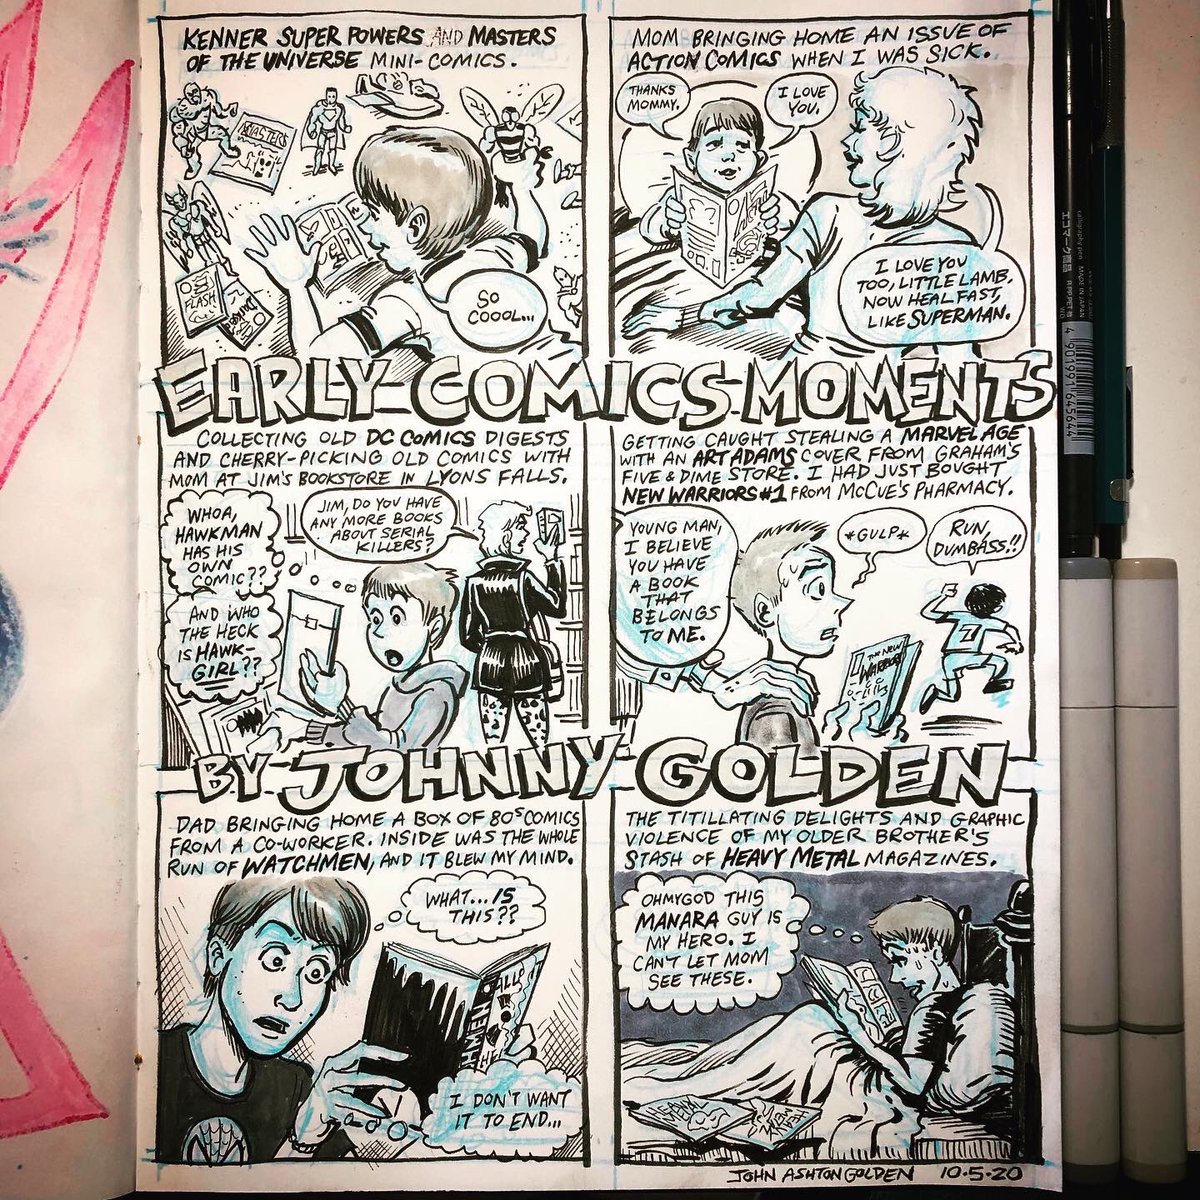 KENNER SUPER POWERS AND MASTERS
OF THE UNIVERSE MINI-COMICS.
MASTERS
FLASH
SO
COOOL...
MOM BRINGING HOME AN ISSUE OF
ACTION COMICS WHEN I WAS SICK.
THANKS
MOMMY.
I LOVE
YOU.
I LOVE YOU
TOO, LITTLE LAMB.
NOW HEAL FAST,
LIKE SUPERMAN.
EARLY COMICS MOMENTS
COLLECTING OLD DC COMICS DIGESTS
AND CHERRY-PICKING OLD COMICS WITH
MOM AT JIM'S BOOKSTORE IN LYONS FALLS.
WHOA,
HAWKMAN
HAS HIS
OWN
COMIC??
AND WHO
THE HECK
IS HAWK-
GIRL??
JIM, DO YOU HAVE
ANY MORE BOOKS
ABOUT SERIAL
KILLERS?
GETTING CAUGHT STEALING A MARVEL AGE
WITH AN ART ADAMS COVER FROM GRAHAM'S
FIVE & DIME STORE. I HAD JUST BOUGHT
NEW WARRIORS #1 FROM McCUE'S PHARMACY.
YOUNG MAN,
I BELIEVE
YOU HAVE
A BOOK
THAT
BELONGS
TO ME.
*GULP*
RUN,
DUMBASS!!
THE NEW
WARRIORS
BY JOHNNY GOLDEN
DAD BRINGING HOME A BOX OF 80s COMICS
FROM A CO-WORKER. INSIDE WAS THE WHOLE
RUN OF WATCHMEN, AND IT BLEW MY MIND.
WHAT...IS
THIS??
I DON'T WANT
IT TO END...
THE TITILLATING DELIGHTS AND GRAPHIC
VIOLENCE OF MY OLDER BROTHER'S
STASH OF HEAVY METAL MAGAZINES.
OHMYGOD THIS
MANARA GUY IS
MY HERO. I
CAN'T LET MOM
SEE THESE.
JOHN ASHTON GOLDEN 10-5-20
calligraphy pen
エコマーク商品
MADE IN JAPAN
4 901991 645644